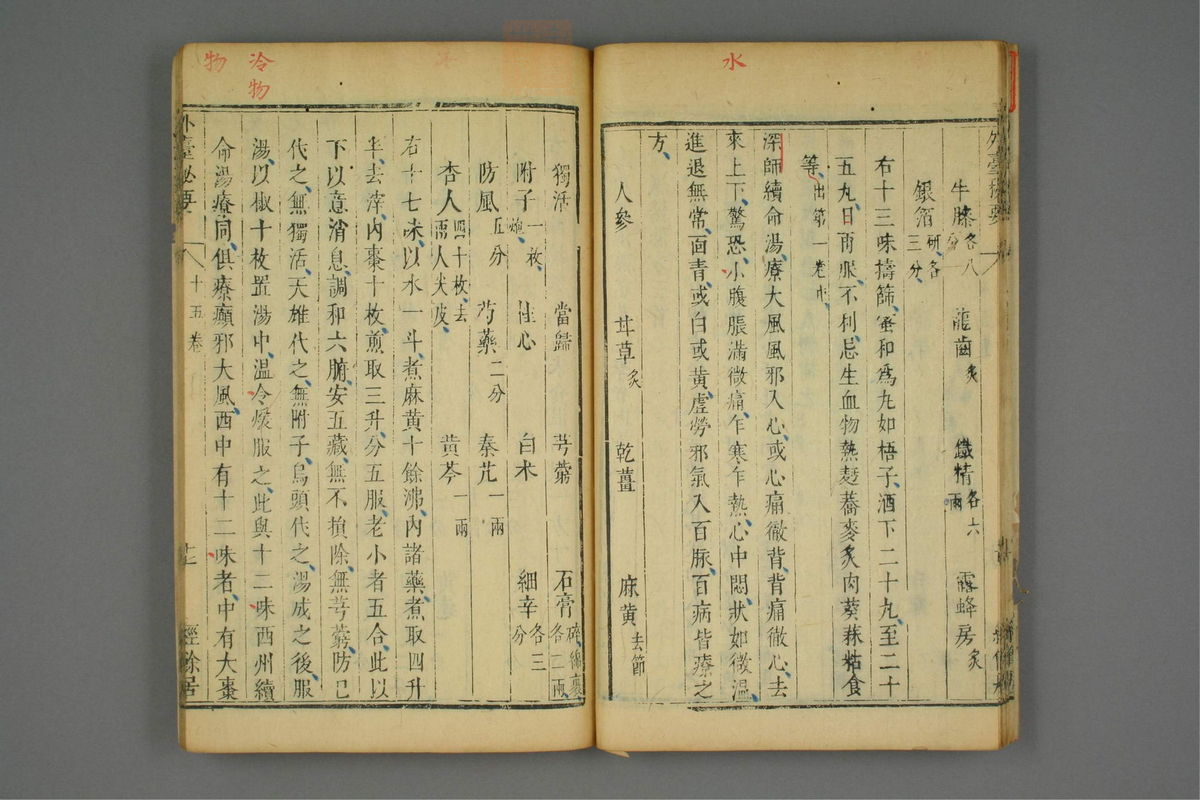 水
外臺秘要
牛膝各八分 龍齒炙 鐵精各六兩 露蜂房炙
銀箔研各三分
右十三味擣篩蜜和為丸如梧子酒下二十丸至二十
五丸日再服不利忌生血物熱麪蕎麥炙肉葵蒜粘食
等出第一卷中
深師續命湯療大風風邪入心或心痛徹背背痛徹心去
來上下驚恐小腹脹滿微痛乍寒乍熱心中悶狀如微溫
進退無常面青或白或黃虛勞邪氣入百脉百病皆療之
方
人參 甘草炙 乾薑 麻黃去節
冷物
物
獨活 當歸 芎藭 石膏碎綿裹各二兩
附子一枚炮 桂心 白朮 細辛各三分
防風五分 芍藥二分 秦艽一兩
杏人四十枚去兩人尖皮 黃芩一兩
右十七味以水一斗煮麻黃十餘沸內諸藥煮取四升
半去滓內棗十枚煎取三升分五服老小者五合此以
下以意消息調和六腑安五藏無不損除無芎藭防己
代之無獨活天雄代之無附子烏頭代之湯成之後服
湯以椒十枚置湯中溫令煖服之此與十二味西州續
命湯療同俱療癲邪大風西中有十二味者中有大棗
外臺秘要 十五卷 經餘居